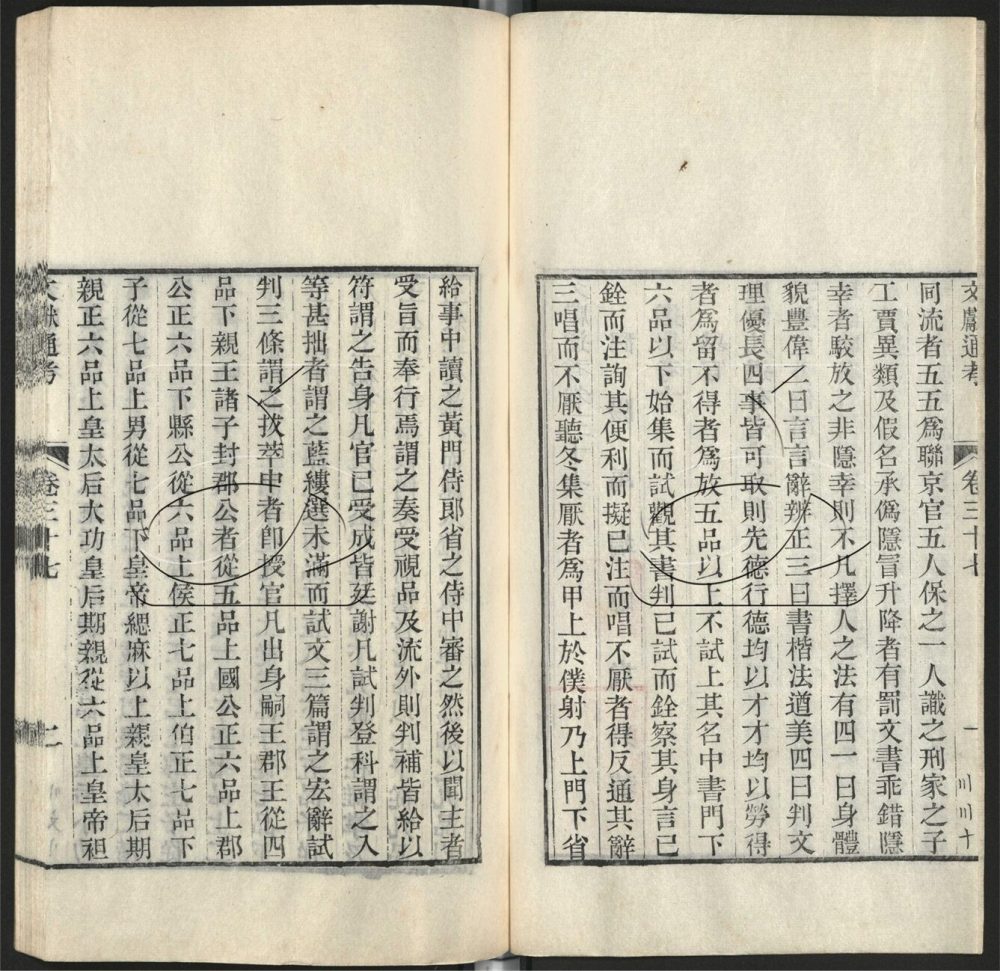 文獻通考 卷三十七 一
同流者五五爲聯京官五人保之一人識之刑家之子
工賈異類及假名承僞隱冒升降者有罰文書乖錯隱
幸者駮放之非隱幸則不凡擇人之法有四一曰身體
貌豐偉二曰言言辭辨正三曰書楷法遒美四曰判文
理優長四事皆可取則先德行德均以才才均以勞得
者爲留不得者爲放五品以上不試上其名中書門下
六品以下始集而試觀其書判已試而銓察其身言已
銓而注詢其便利而擬已注而唱不厭者得反通其辭
三唱而不厭聽冬集厭者爲甲上於僕射乃上門下省
給事中讀之黃門侍郎省之侍中審之然後以聞主者
受旨而奉行焉謂之奏受視品及流外則判補皆給以
符謂之告身凡官已受成皆廷謝凡試判登科謂之入
等甚拙者謂之藍縷選未滿而試文三篇謂之宏辭試
判三條謂之拔萃中者卽授官凡出身嗣王郡王從四
品下親王諸子封郡公者從五品上國公正六品上郡
公正六品下縣公從六品上侯正七品上伯正七品下
子從七品上男從七品下皇帝緦麻以上親皇太后期
親正六品上皇太后大功皇后期親從六品上皇帝袒
文獻通考 卷三十七 二